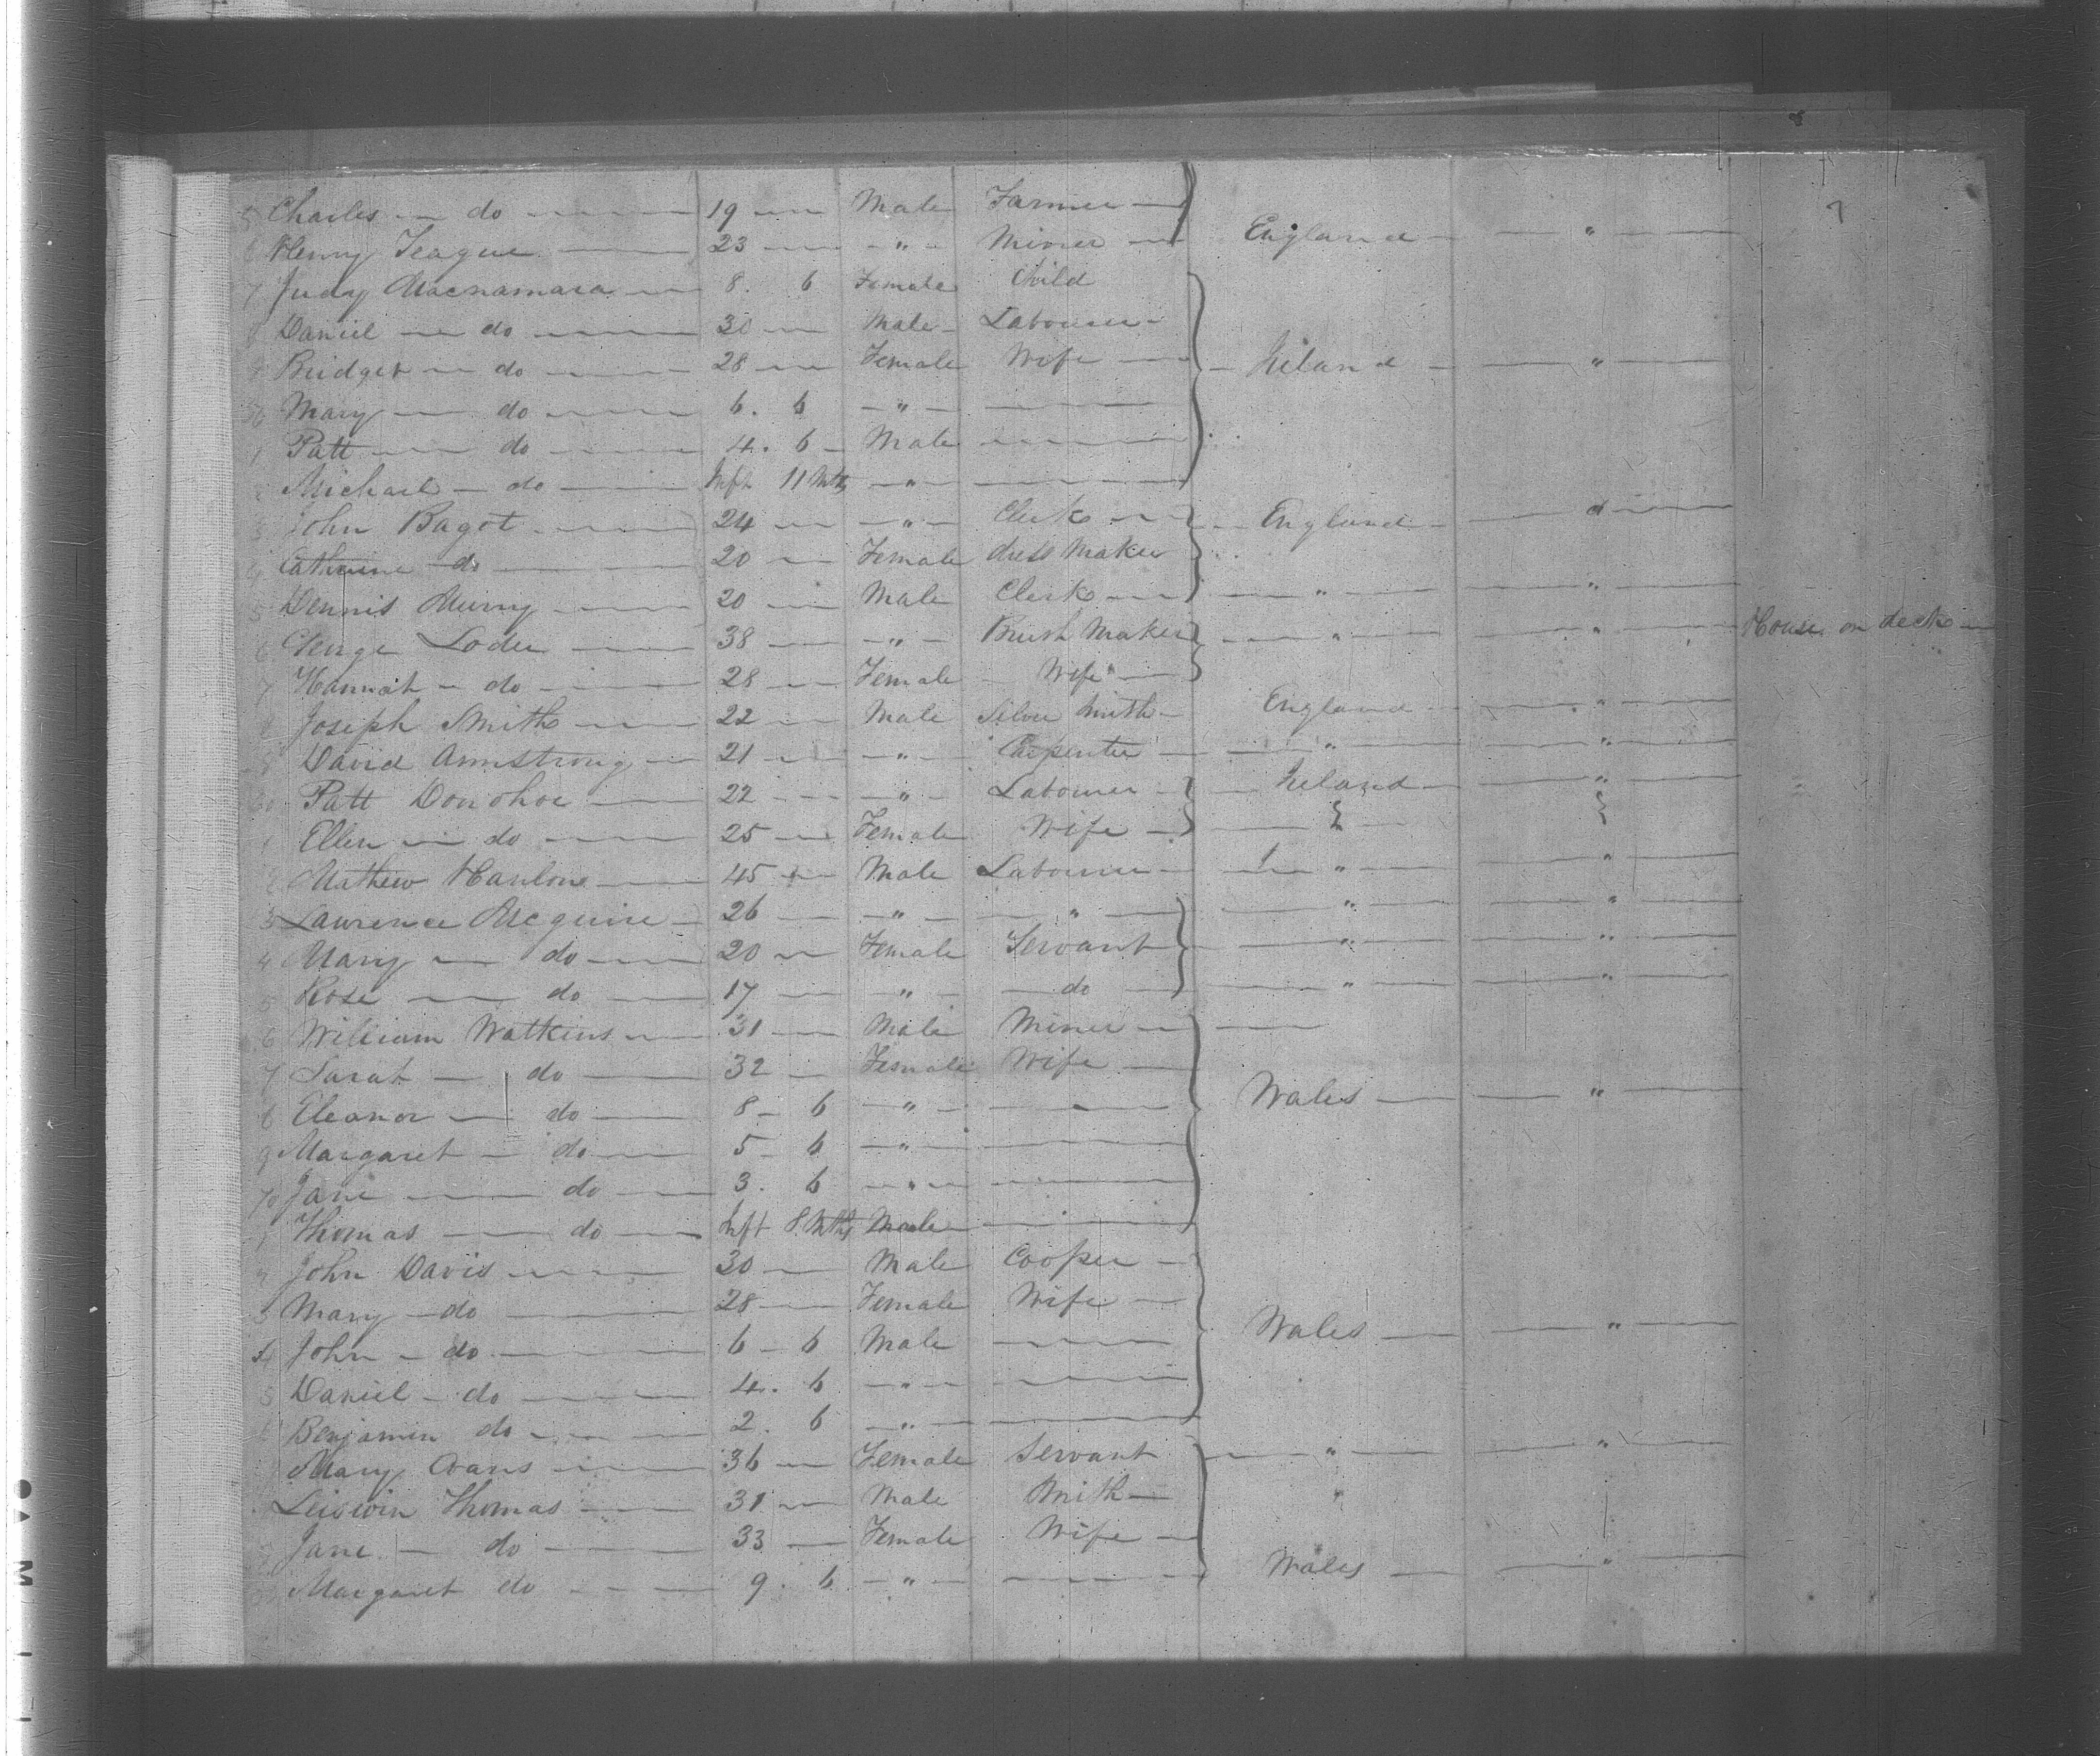 5 Charles — do — 19 — Male Farmer —
6 Henry Teague — 23 — " — Miner — England — "
7 Judy Macnamara — 8. 6 Female Child
8 Daniel — do — 30 — Male — Labourer —
9 Bridget — do — 28 — Female Wife — Ireland — "
50 Mary — do — 6. 6 — " —
1 Patt — do — 4. 6 — Male —
2 Michael — do — Inft 11 Mths — " —
3 John Bagot — 24 — " — Clerk — England —
4 Catherine do — 20 — Female dress Maker
5 Dennis Murry — 20 — Male Clerk — " — "
6 George Loder — 38 — " — Brush Maker — " — " House on deck —
7 Hannah — do — 28 — Female — Wife —
8 Joseph Smith — 22 — Male Silver Smith — England — "
9 David Armstrong — 21 — " — Carpenter — " — "
60 Patt Donohoe — 22 — " — Labourer — Ireland — "
1 Ellen — do — 25 — Female Wife —
2 Mathew Hanlon — 45 — Male Labourer — " — "
3 Lawrence McGuire — 26 — " — " — " — "
4 Mary — do — 20 — Female Servant — " — "
5 Rose — do — 17 — " — do — " — "
6 William Watkins — 31 — Male Miner —
7 Sarah — do — 32 — Female Wife —
8 Eleanor — do — 8 — 6 — " — Wales — "
9 Margaret — do — 5 — 6 — " —
70 Jane — do — 3. 6 — " —
1 Thomas — do — Inft 8 Mths Male —
2 John Davis — 30 — Male Cooper —
3 Mary — do — 28 — Female Wife —
4 John — do — 6 — 6 Male — Wales — "
5 Daniel — do — 4. 6 — " —
6 Benjamin do — 2. 6 — " —
Mary Evans — 36 — Female Servant — " — "
Thomas — 31 — Male Smith —
Jane — do — 33 — Female Wife —
Margaret do — 9. 6 — " — Wales — "